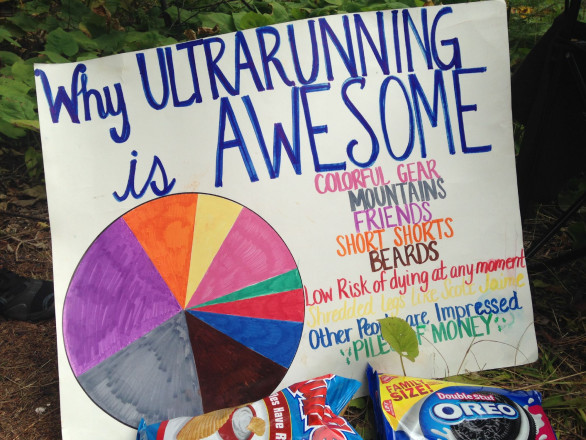 Why ULTRARUNNING
is AWESOME
COLORFUL GEAR
MOUNTAINS
FRIENDS
SHORT SHORTS
BEARDS
Low Risk of dying at any moment
Shredded legs like Scott Jaime
Other People are Impressed
PILES OF MONEY
FAMILY
SIZE!
Double Stuf
OREO